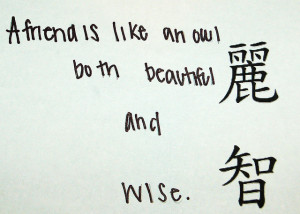 A friend is like an owl
both beautiful
麗
and
智
wise.